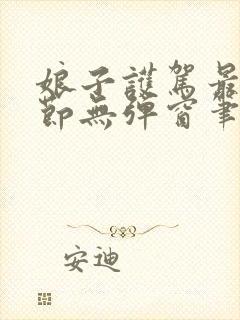 娘子護駕最
節無彈窗筆
安迪